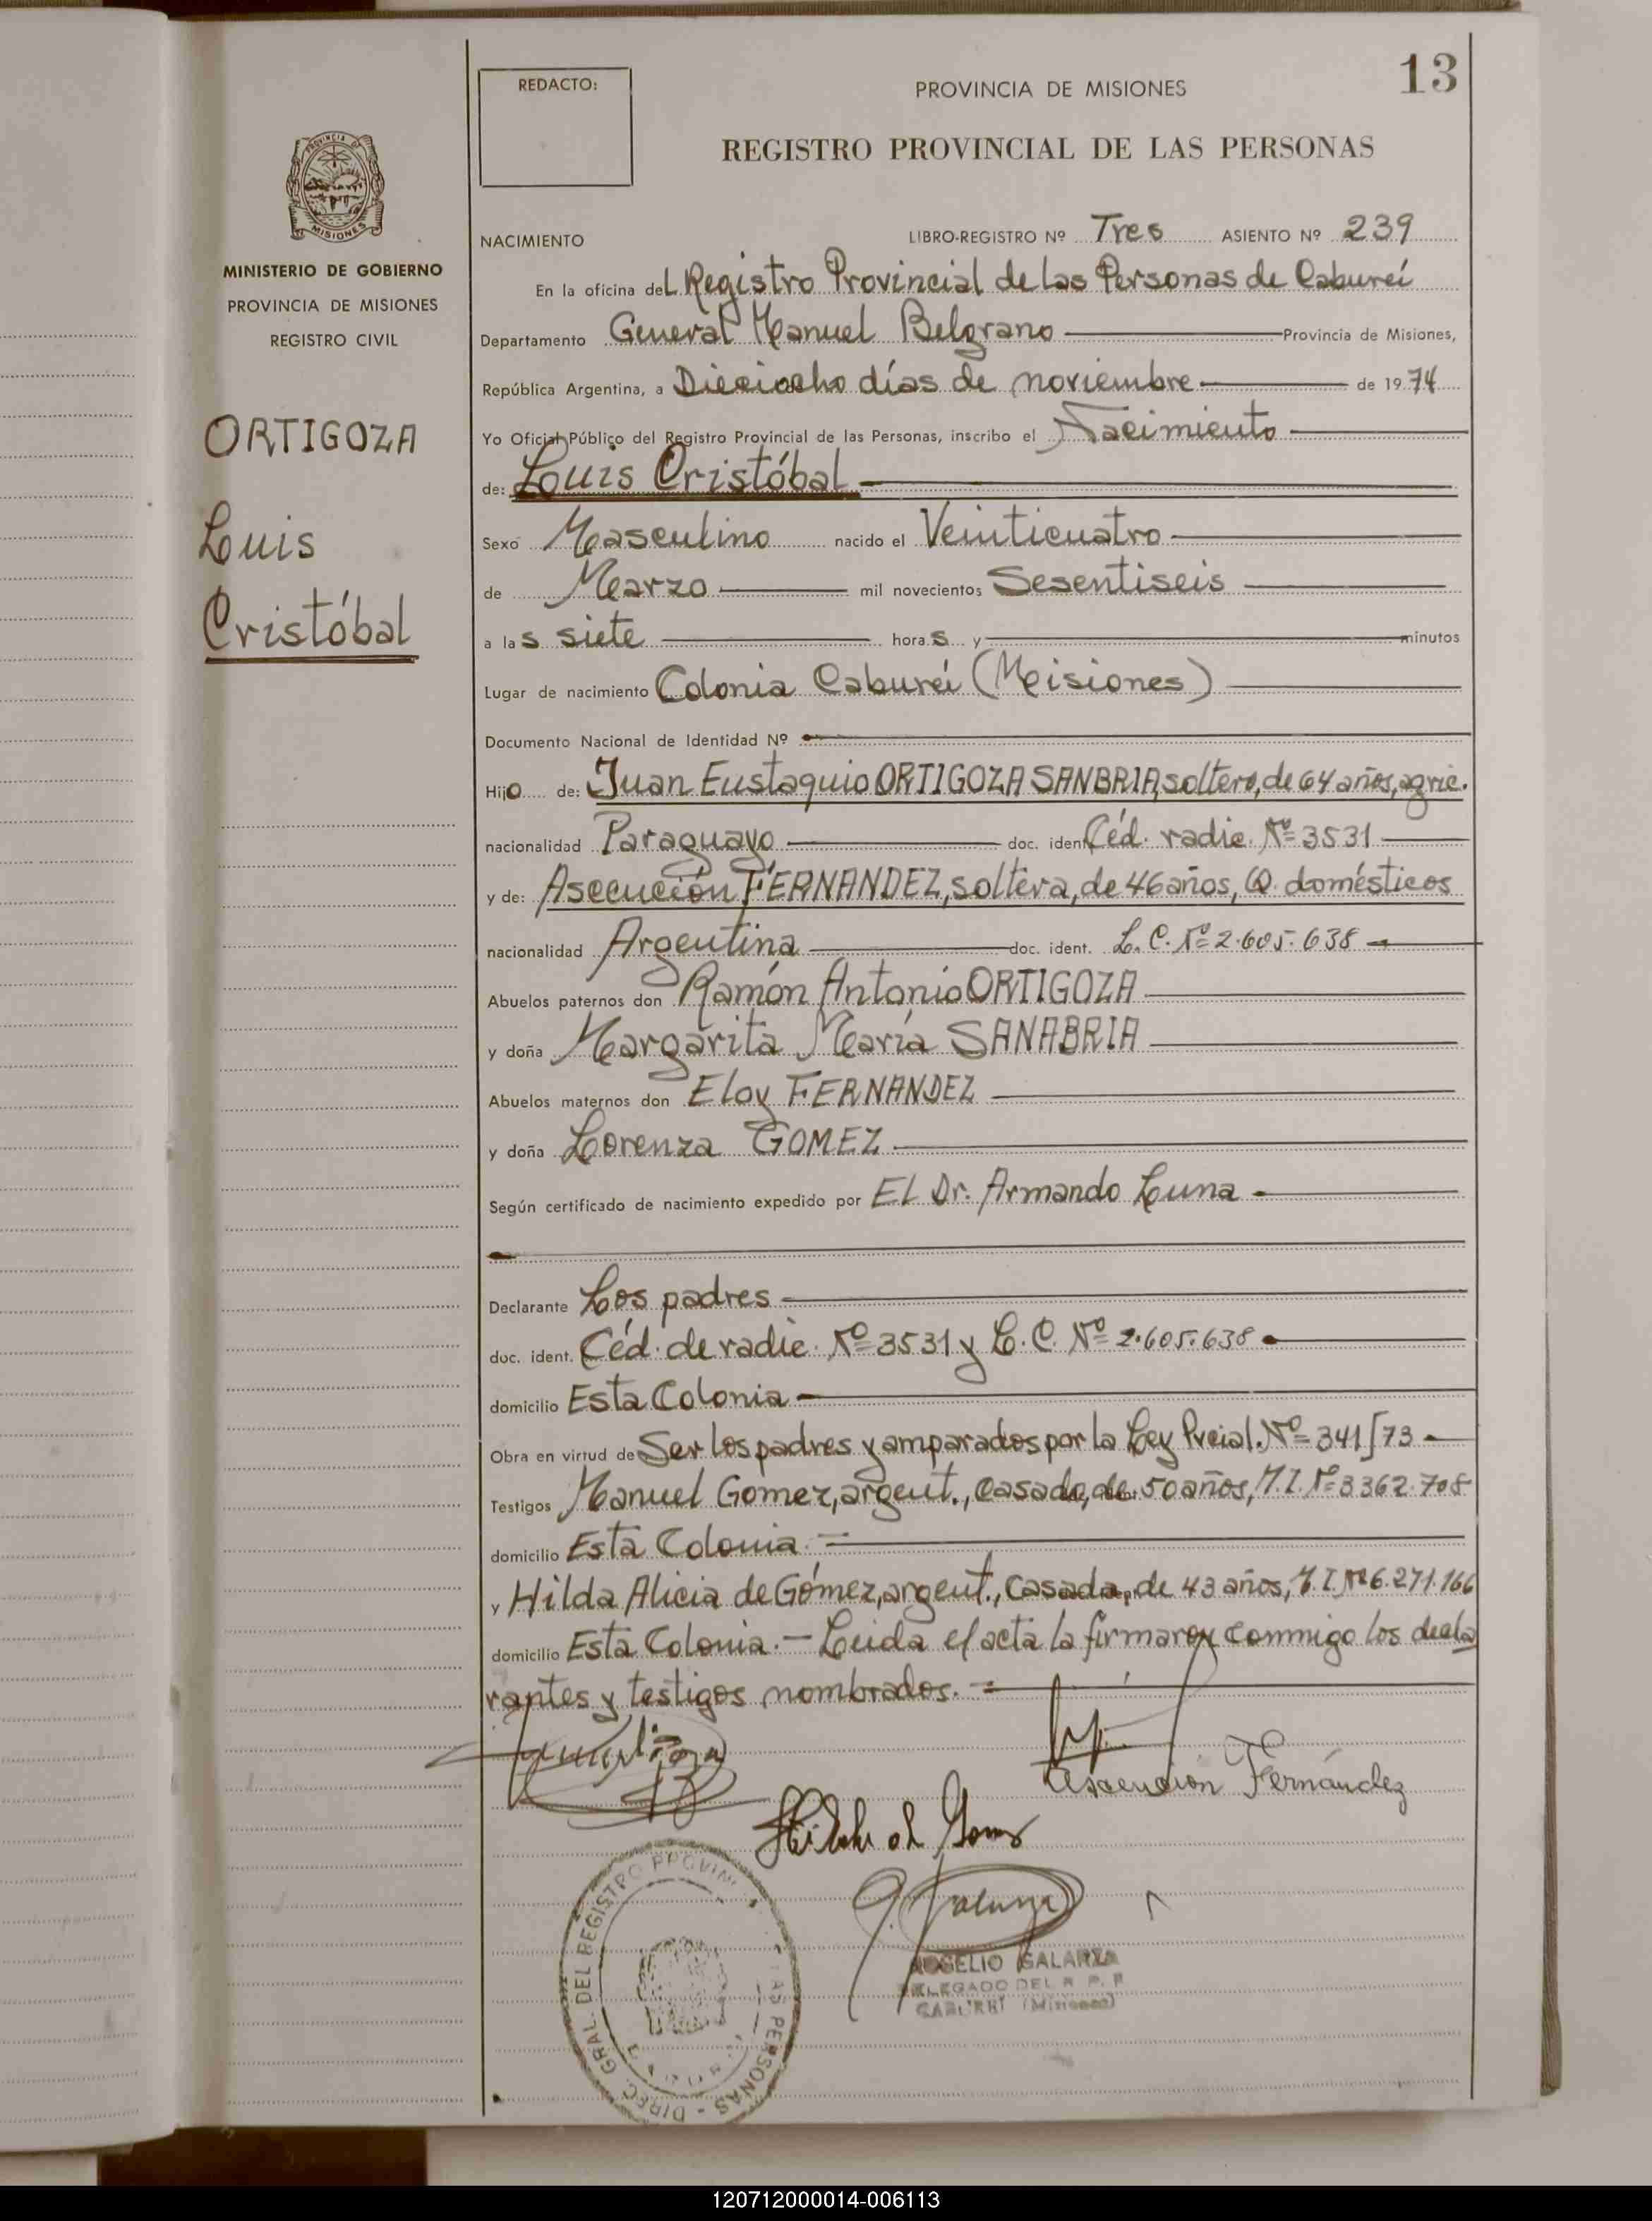 13
REDACTO:
PROVINCIA DE MISIONES
REGISTRO PROVINCIAL DE LAS PERSONAS
PROVINCIA DE
MISIONES
MINISTERIO DE GOBIERNO
PROVINCIA DE MISIONES
REGISTRO CIVIL
ORTIGOZA
Luis
Cristóbal
NACIMIENTO LIBRO-REGISTRO Nº Tres ASIENTO Nº 239
En la oficina del Registro Provincial de las Personas de Caburei
Departamento General Manuel Belgrano Provincia de Misiones,
República Argentina, a Dieciocho días de noviembre de 1974
Yo Oficial Público del Registro Provincial de las Personas, inscribo el Nacimiento
de: Louis Cristóbal
Sexo Masculino nacido el Veinticuatro
de Marzo mil novecientos Sesentiseis
a las siete horas y minutos
Lugar de nacimiento Colonia Caburei (Misiones)
Documento Nacional de Identidad Nº
Hijo de: Juan Eustaquio ORTIGOZA SANBRIA, soltero, de 64 años, agric.
nacionalidad Paraguayo doc. ident. Céd. radic. Nº 3531
y de: Ascención FERNANDEZ, soltera, de 46 años, Q. domésticos
nacionalidad Argentina doc. ident. L. C. Nº 2.605.638
Abuelos paternos don Ramón Antonio ORTIGOZA
y doña Margarita María SANABRIA
Abuelos maternos don Eloy FERNANDEZ
y doña Lorenza GOMEZ
Según certificado de nacimiento expedido por El Dr. Armando Luna
Declarante Los padres
doc. ident. Céd. de radic. Nº 3531 y L. C. Nº 2.605.638
domicilio Esta Colonia
Obra en virtud de Ser los padres y amparados por la Ley Pvcial. Nº 341/73
Testigos Manuel Gomez, argent., casado, de 50 años, M.I. Nº 3362.708
domicilio Esta Colonia
y Hilda Alicia de Gómez, argent., casada, de 43 años, M.I. Nº 6.271.166
domicilio Esta Colonia. - Leida el acta la firmaron conmigo los decla
rantes y testigos nombrados.
Ascencion Fernández
Hilda de Gomez
ROGELIO GALARZA
DELEGADO DEL R. P. P.
CABUREI (Misiones)
DIREC. GRAL. DEL REGISTRO PROVIN LAS PERSONAS
120712000014-006113